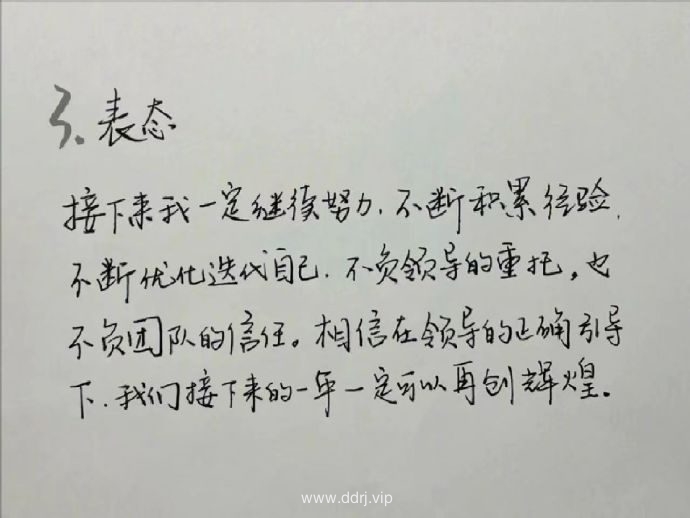 3、表态
接下来我一定继续努力，不断积累经验，
不断优化迭代自己，不负领导的重托，也
不负团队的信任。相信在领导的正确引导
下，我们接下来的一年一定可以再创辉煌。
www.ddrj.vip